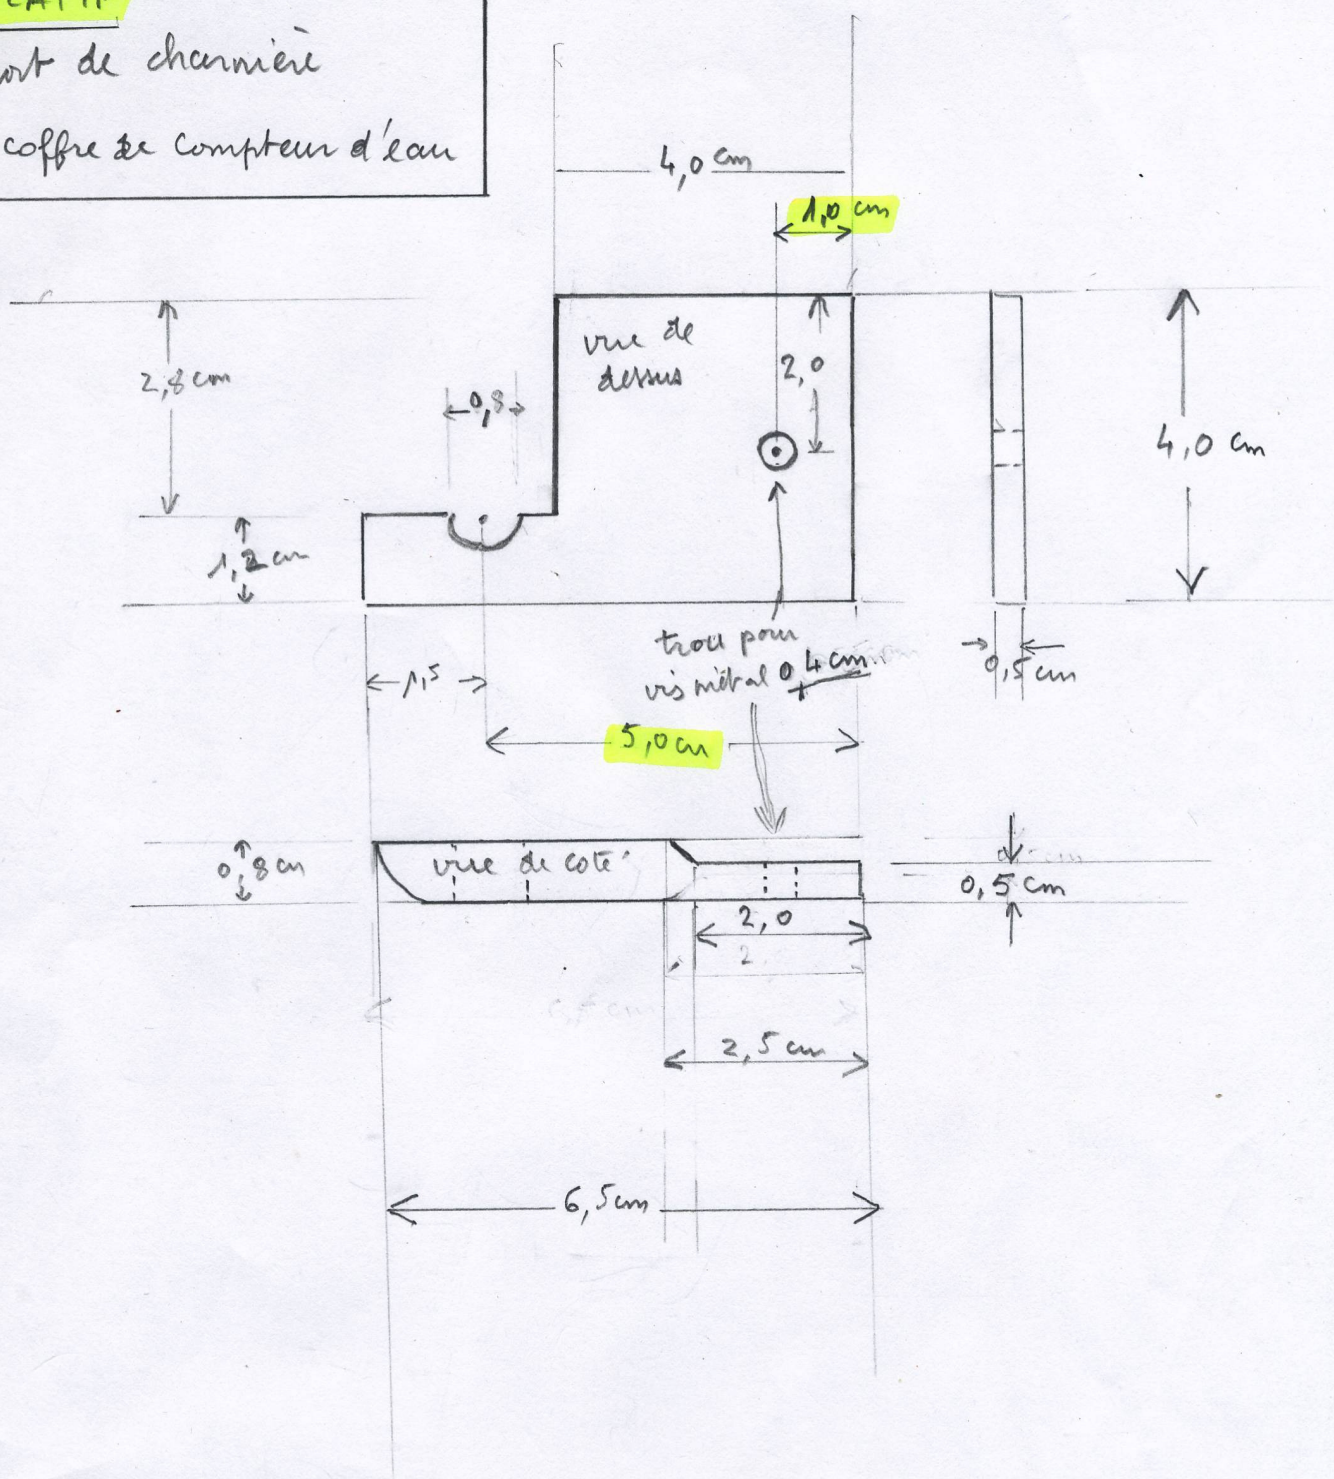 de charnière
coffre de compteur d'eau
4,0 cm
1,0 cm
vue de
dessus
2,0
2,8 cm
0,8
4,0 cm
1,2 cm
trou pour
vis métal 0,4 cm
0,5 cm
1,5
5,0 cm
0,8 cm
vue de coté
0,5 cm
2,0
2
2,5 cm
6,5 cm